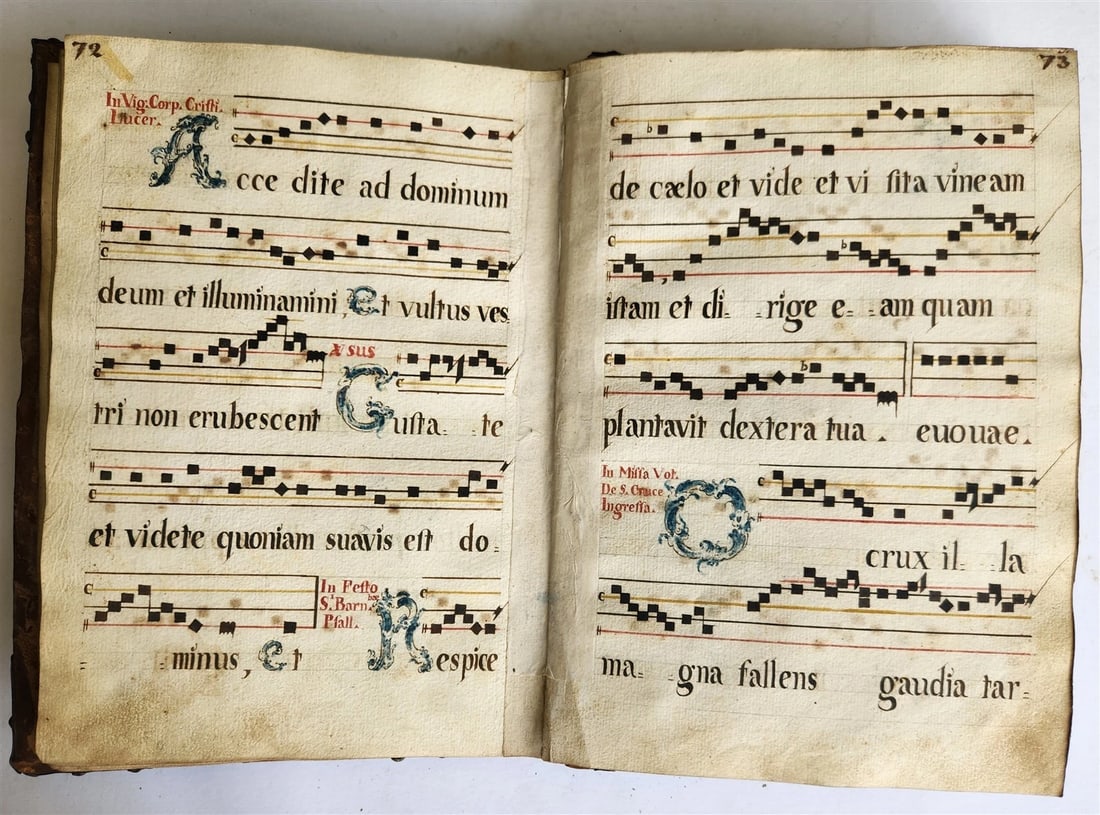 72
In Vig: Corp. Cristi.
Lucer.
Acce dite ad dominum
deum et illuminamini, Et vultus ves
tri non erubescent ℣sus Gusta te
et videte quoniam suavis est do=
= minus, Et In Festo
S.ⁱ Barn.bae
Psall. Respice
73
de cælo et vide et vi sita vineam
istam et di- -rige e= =am quam
plantavit dextera tua. euouae.
In Missa Vot.
De S. Cruce
Ingressa. O crux il- -la
ma- -gna fallens gaudia tar=